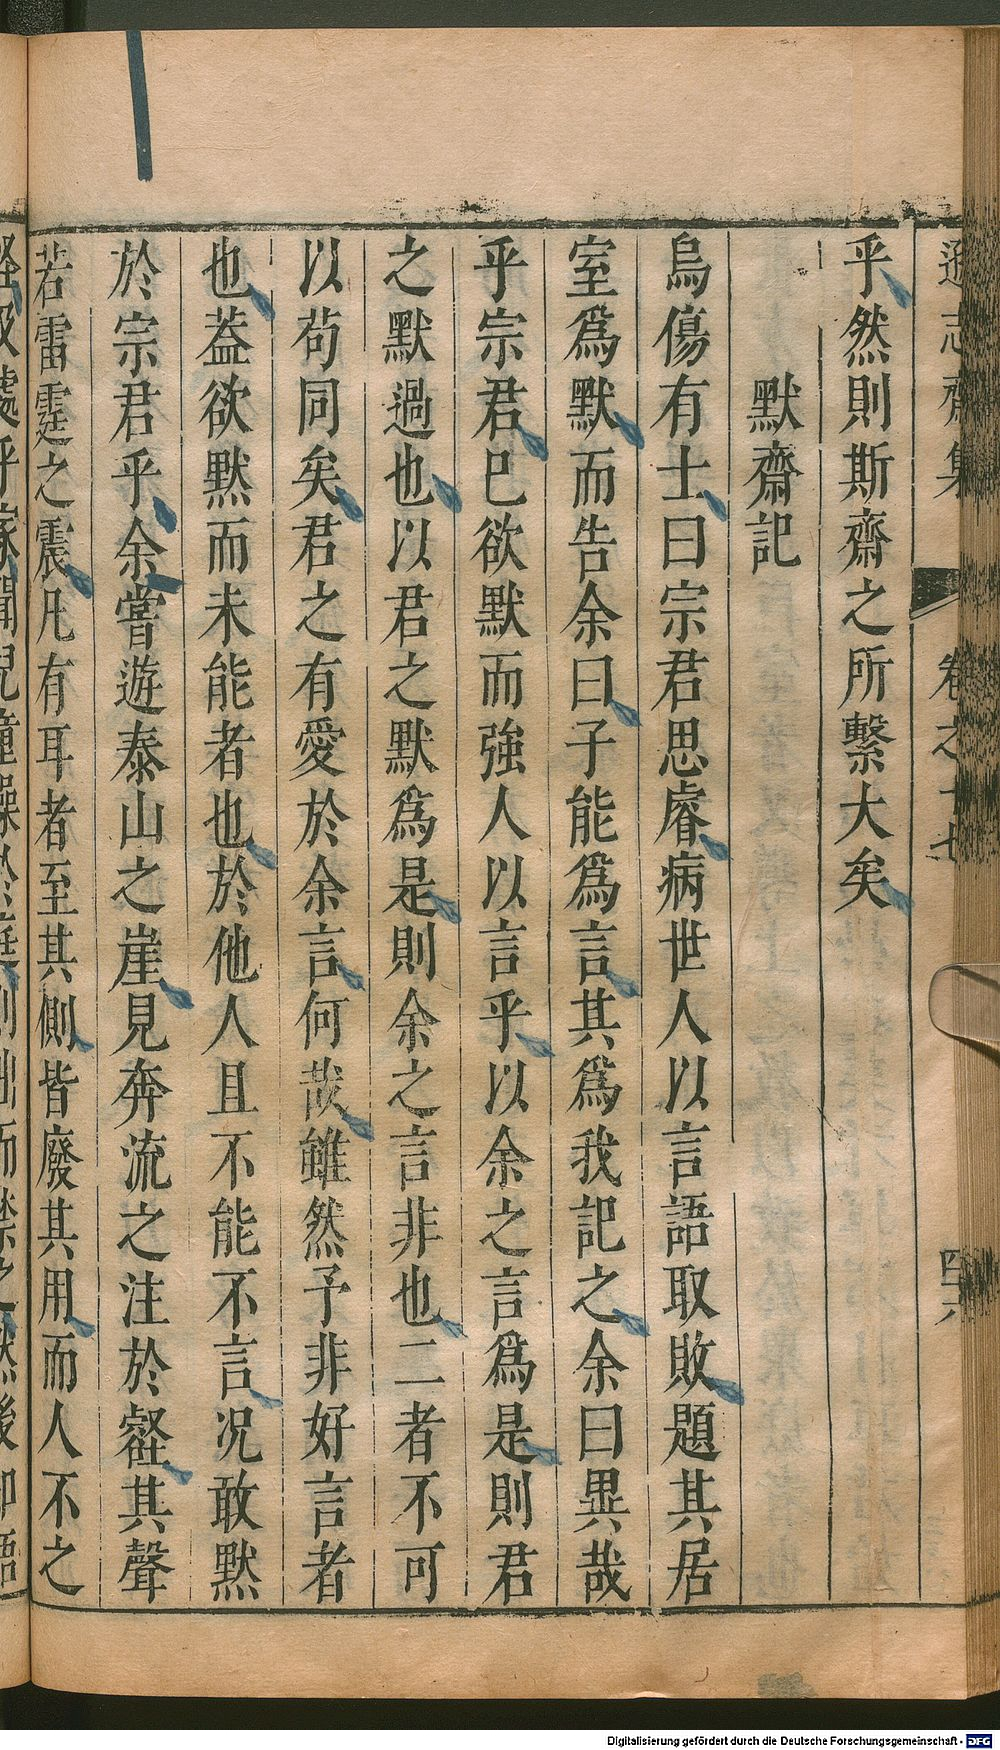 乎然則斯齋之所繫大矣
默齋記
烏傷有士曰宗君思睿病世人以言語取敗題其居
室爲默而告余曰子能爲言其爲我記之余曰異哉
乎宗君巳欲默而強人以言乎以余之言爲是則君
之默過也以君之默爲是則余之言非也二者不可
以茍同矣君之有愛於余言何哉雖然予非好言者
也葢欲黙而未能者也於他人且不能不言况敢黙
於宗君乎余嘗遊泰山之崖見奔流之注於壑其聲
若雷霆之震凡有耳者至其側皆廢其用而人不之
卷之十七
Digitalisierung gefördert durch die Deutsche Forschungsgemeinschaft - DFG